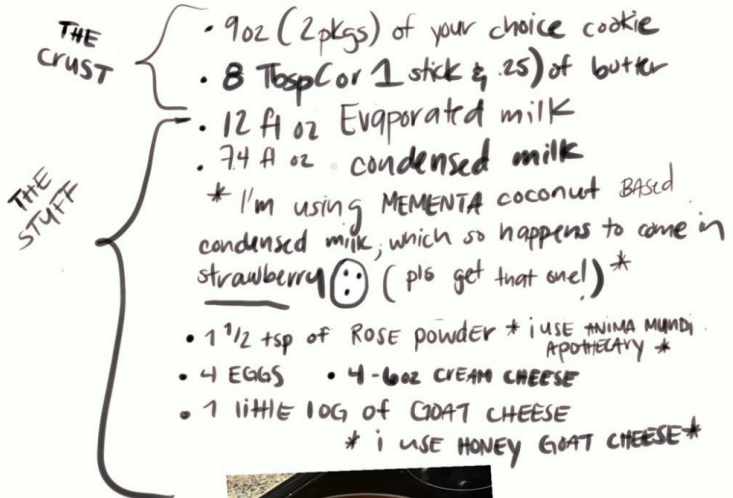 THE
CRUST
• 9oz (2pkgs) of your choice cookie
• 8 Tbsp (or 1 stick & .25) of butter
THE
STUFF
• 12 fl oz Evaporated milk
• 7.4 fl oz condensed milk
* I'm using MEMENTA coconut BASed
condensed milk, which so happens to come in
strawberry (pls get that one!) *
• 1 1/2 tsp of ROSE powder * i USE ANIMA MUNDI
APOTHECARY *
• 4 EGGS • 4-6oz CREAM CHEESE
• 1 little log of GOAT CHEESE
* i USE HONEY GOAT CHEESE *